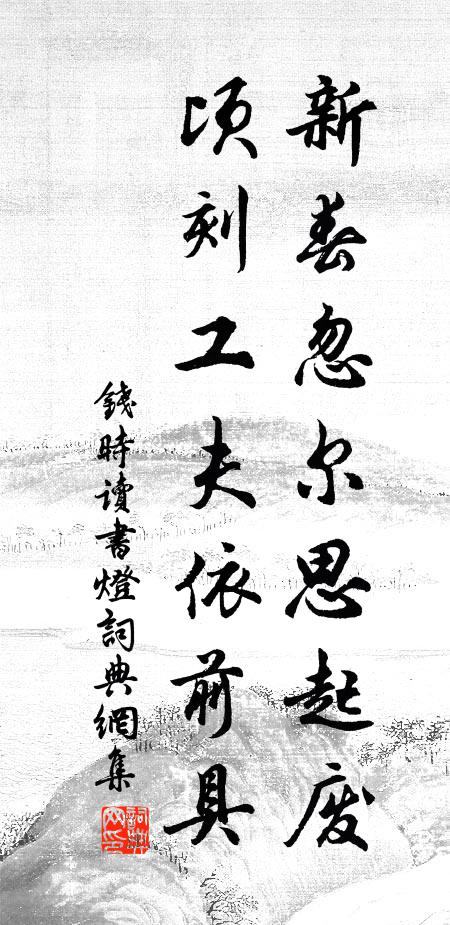 新春忽尔思起废
顷刻工夫依前具
錢時讀書燈詞典網集